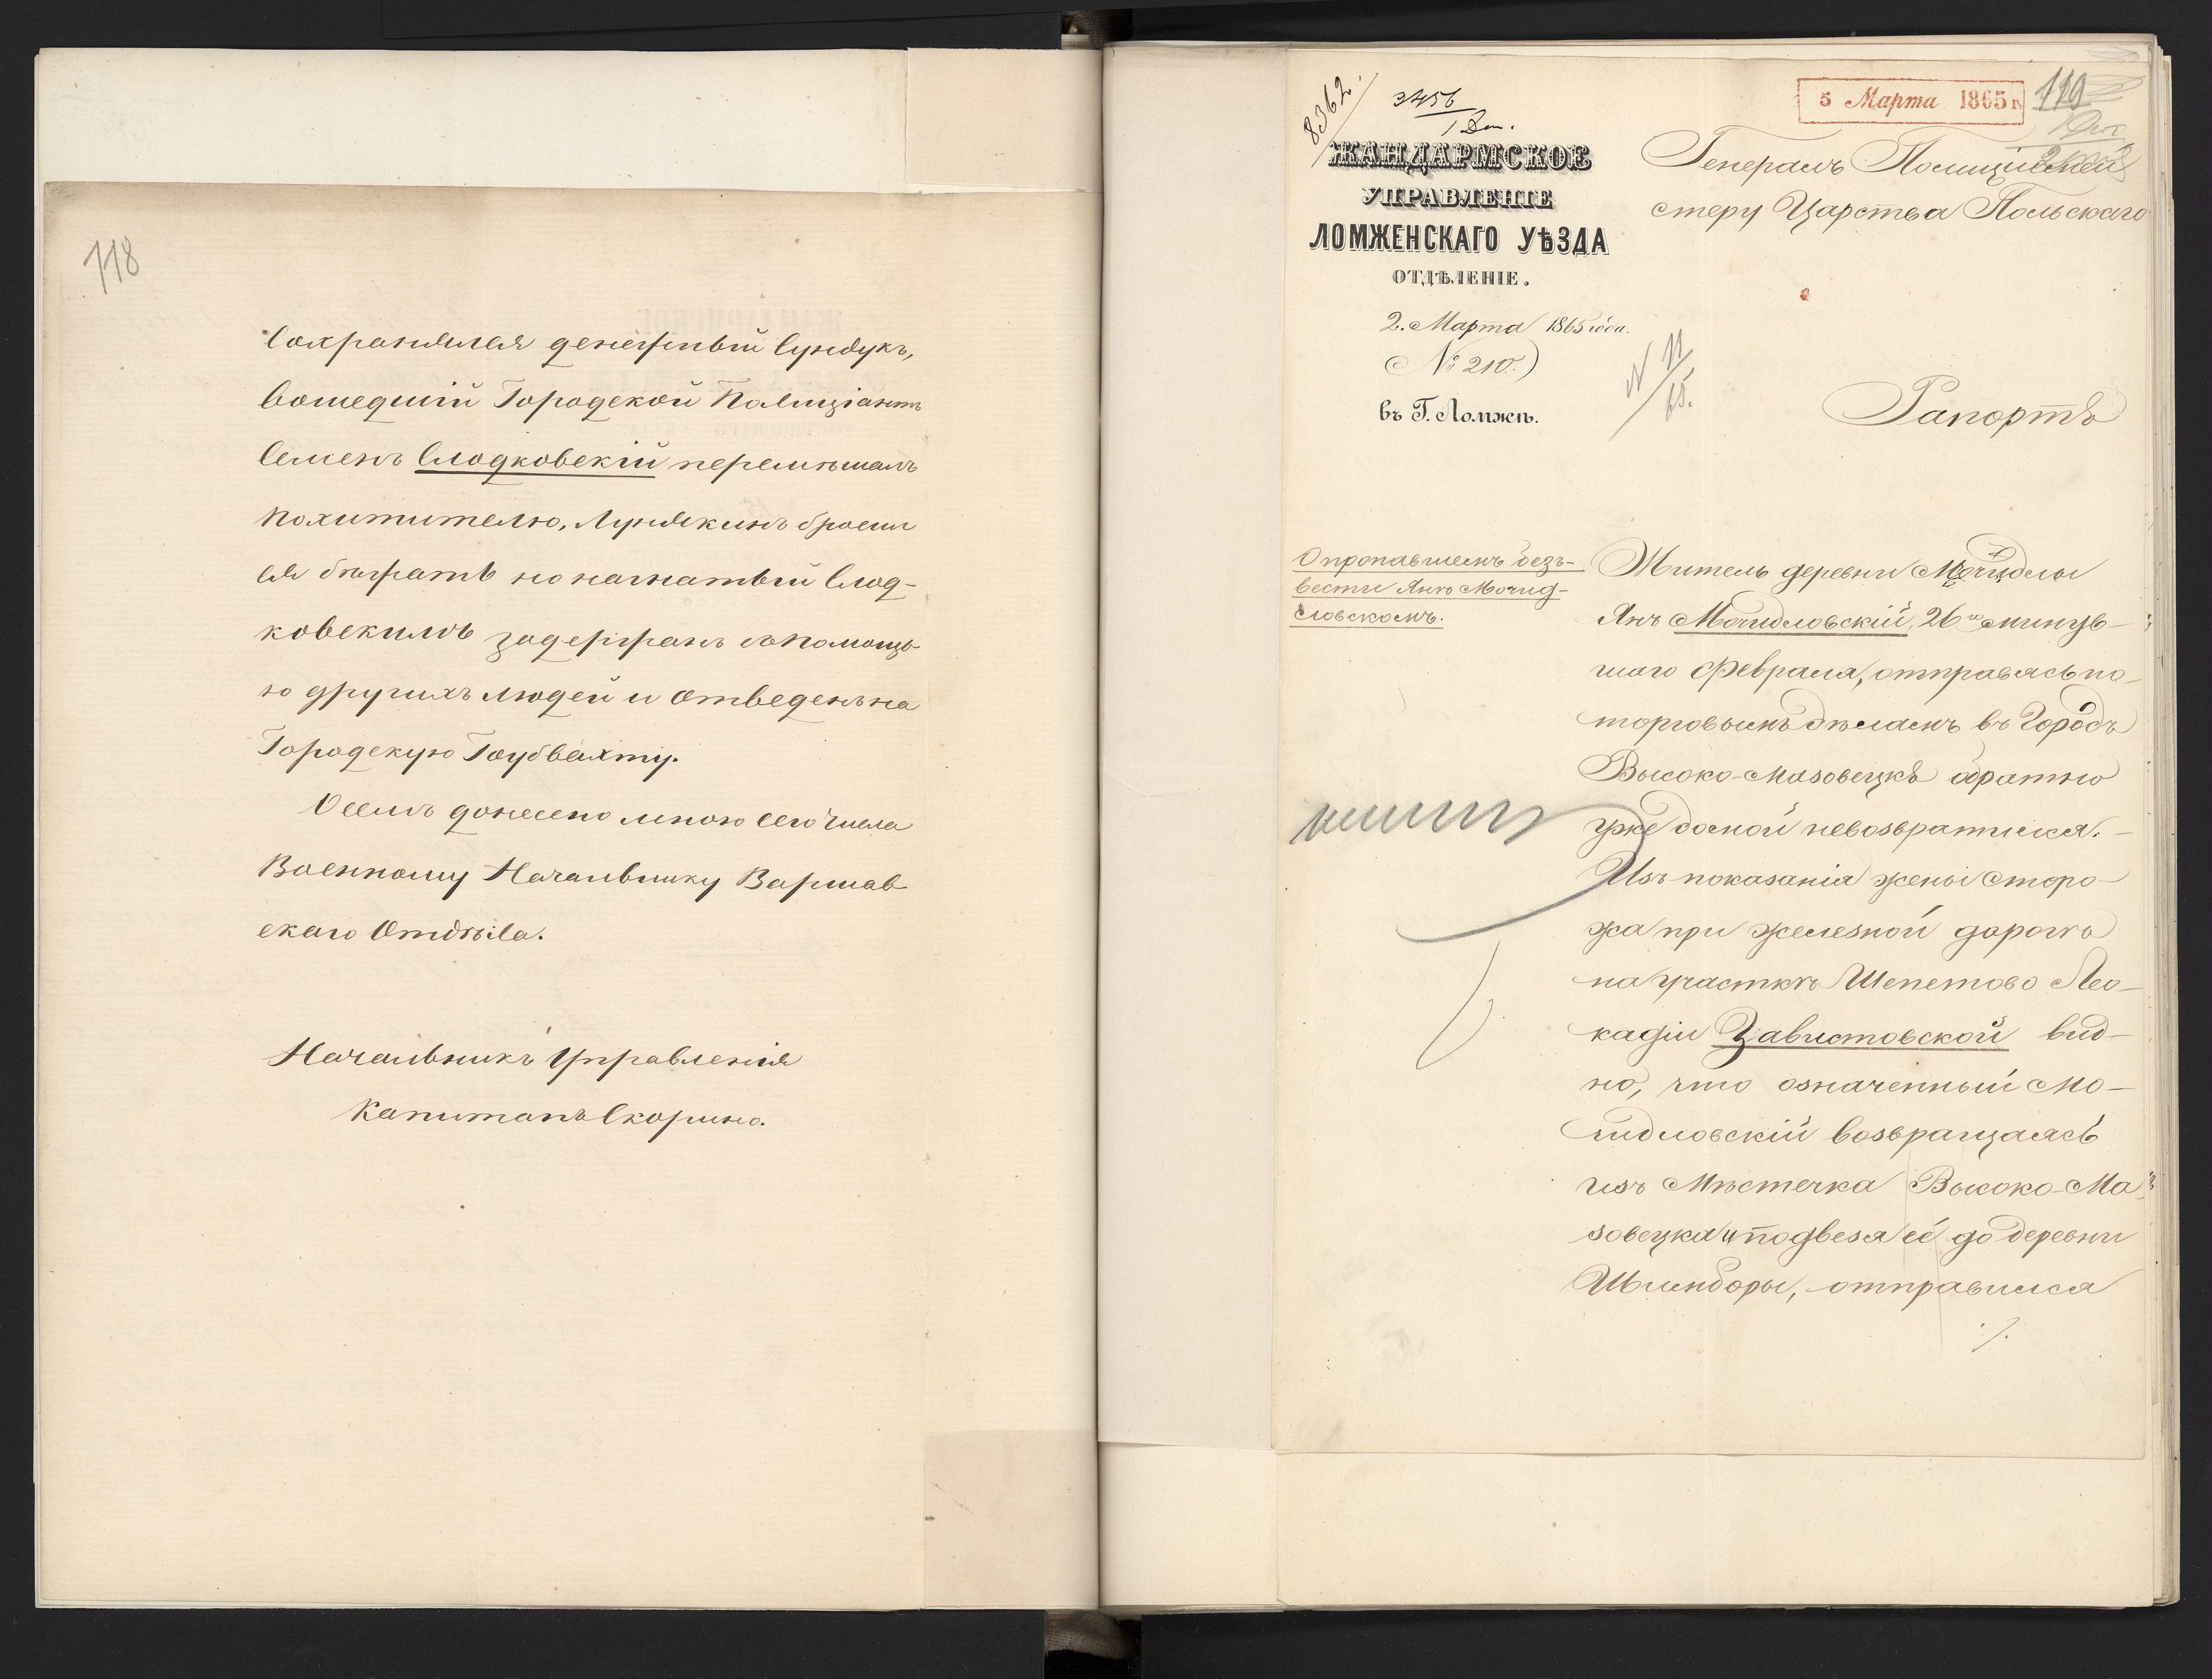 118
Сохранялся денежный Сундукъ,
вошедшій Городской Полиціантъ
Семенъ Слодковскій перемѣшалъ
похитителю, Лунякинъ броси
ся бѣжать но нагнатый Слод-
ковскимъ задержанъ съ помощь-
ю другихъ людей и отведенъ на
Городскую Гоубвахту.
О семъ донесено мною сего числа
Военному Начальнику Варшав
скаго Отдѣла.
Начальникъ Управленія
Капитанъ Скорино.
8362.
3456
1 Дек.
5 Марта 1865 г.
119
ЖАНДАРМСКОЕ
УПРАВЛЕНІЕ
ЛОМЖЕНСКАГО УѢЗДА
ОТДѢЛЕНІЕ.
2. Марта 1865 года.
№ 210.
въ Г. Ломжѣ.
N 11
65.
Генералъ Полицій
стеру Царства Польскаго
Рапортъ
О пропавшемъ безъ-
вести Янѣ Мочид-
ловскомъ.
Житель деревни Мочидлы
Янъ Мочидловскій, 26го минув-
шаго Февраля, отправясь по-
торговымъ дѣламъ въ Городъ
Высоко-Мазовецкъ обратно
уже домой невозвратился.
Изъ показанія жены Сторо-
жа при желѣзной дорогѣ
на участкѣ Шепетово Лео-
кадіи Завистовской вид-
но, что означенный Мо-
чидловскій возвращаясь
изъ Мѣстечка Высоко-Ма
зовецка и подвезя её до деревни
Шлиндоры, отправился